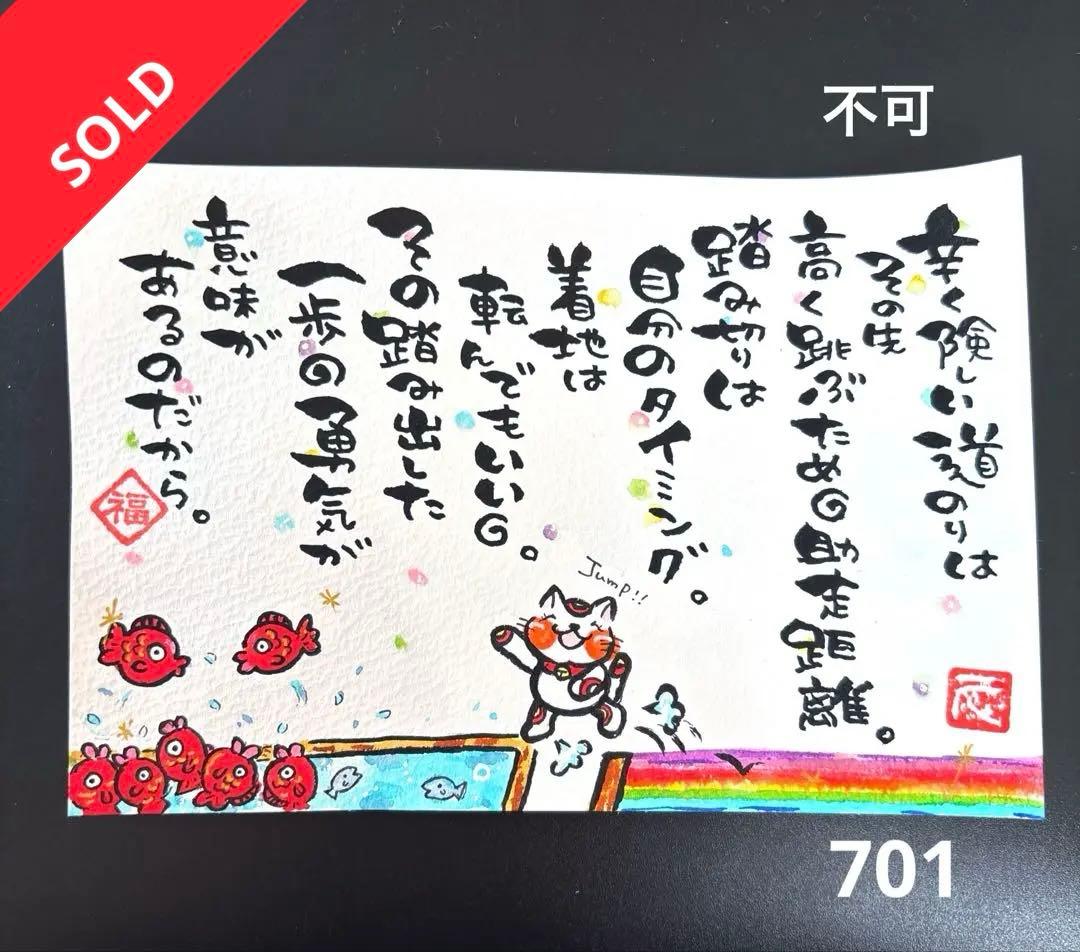 SOLD
不可
辛く険しい道のりは
その先
高く跳ぶための助走距離。
踏み切りは
自分のタイミング。
着地は
転んでもいいの。
その踏み出した
一歩の勇気が
意味が
あるのだから。
福
Jump!!
701